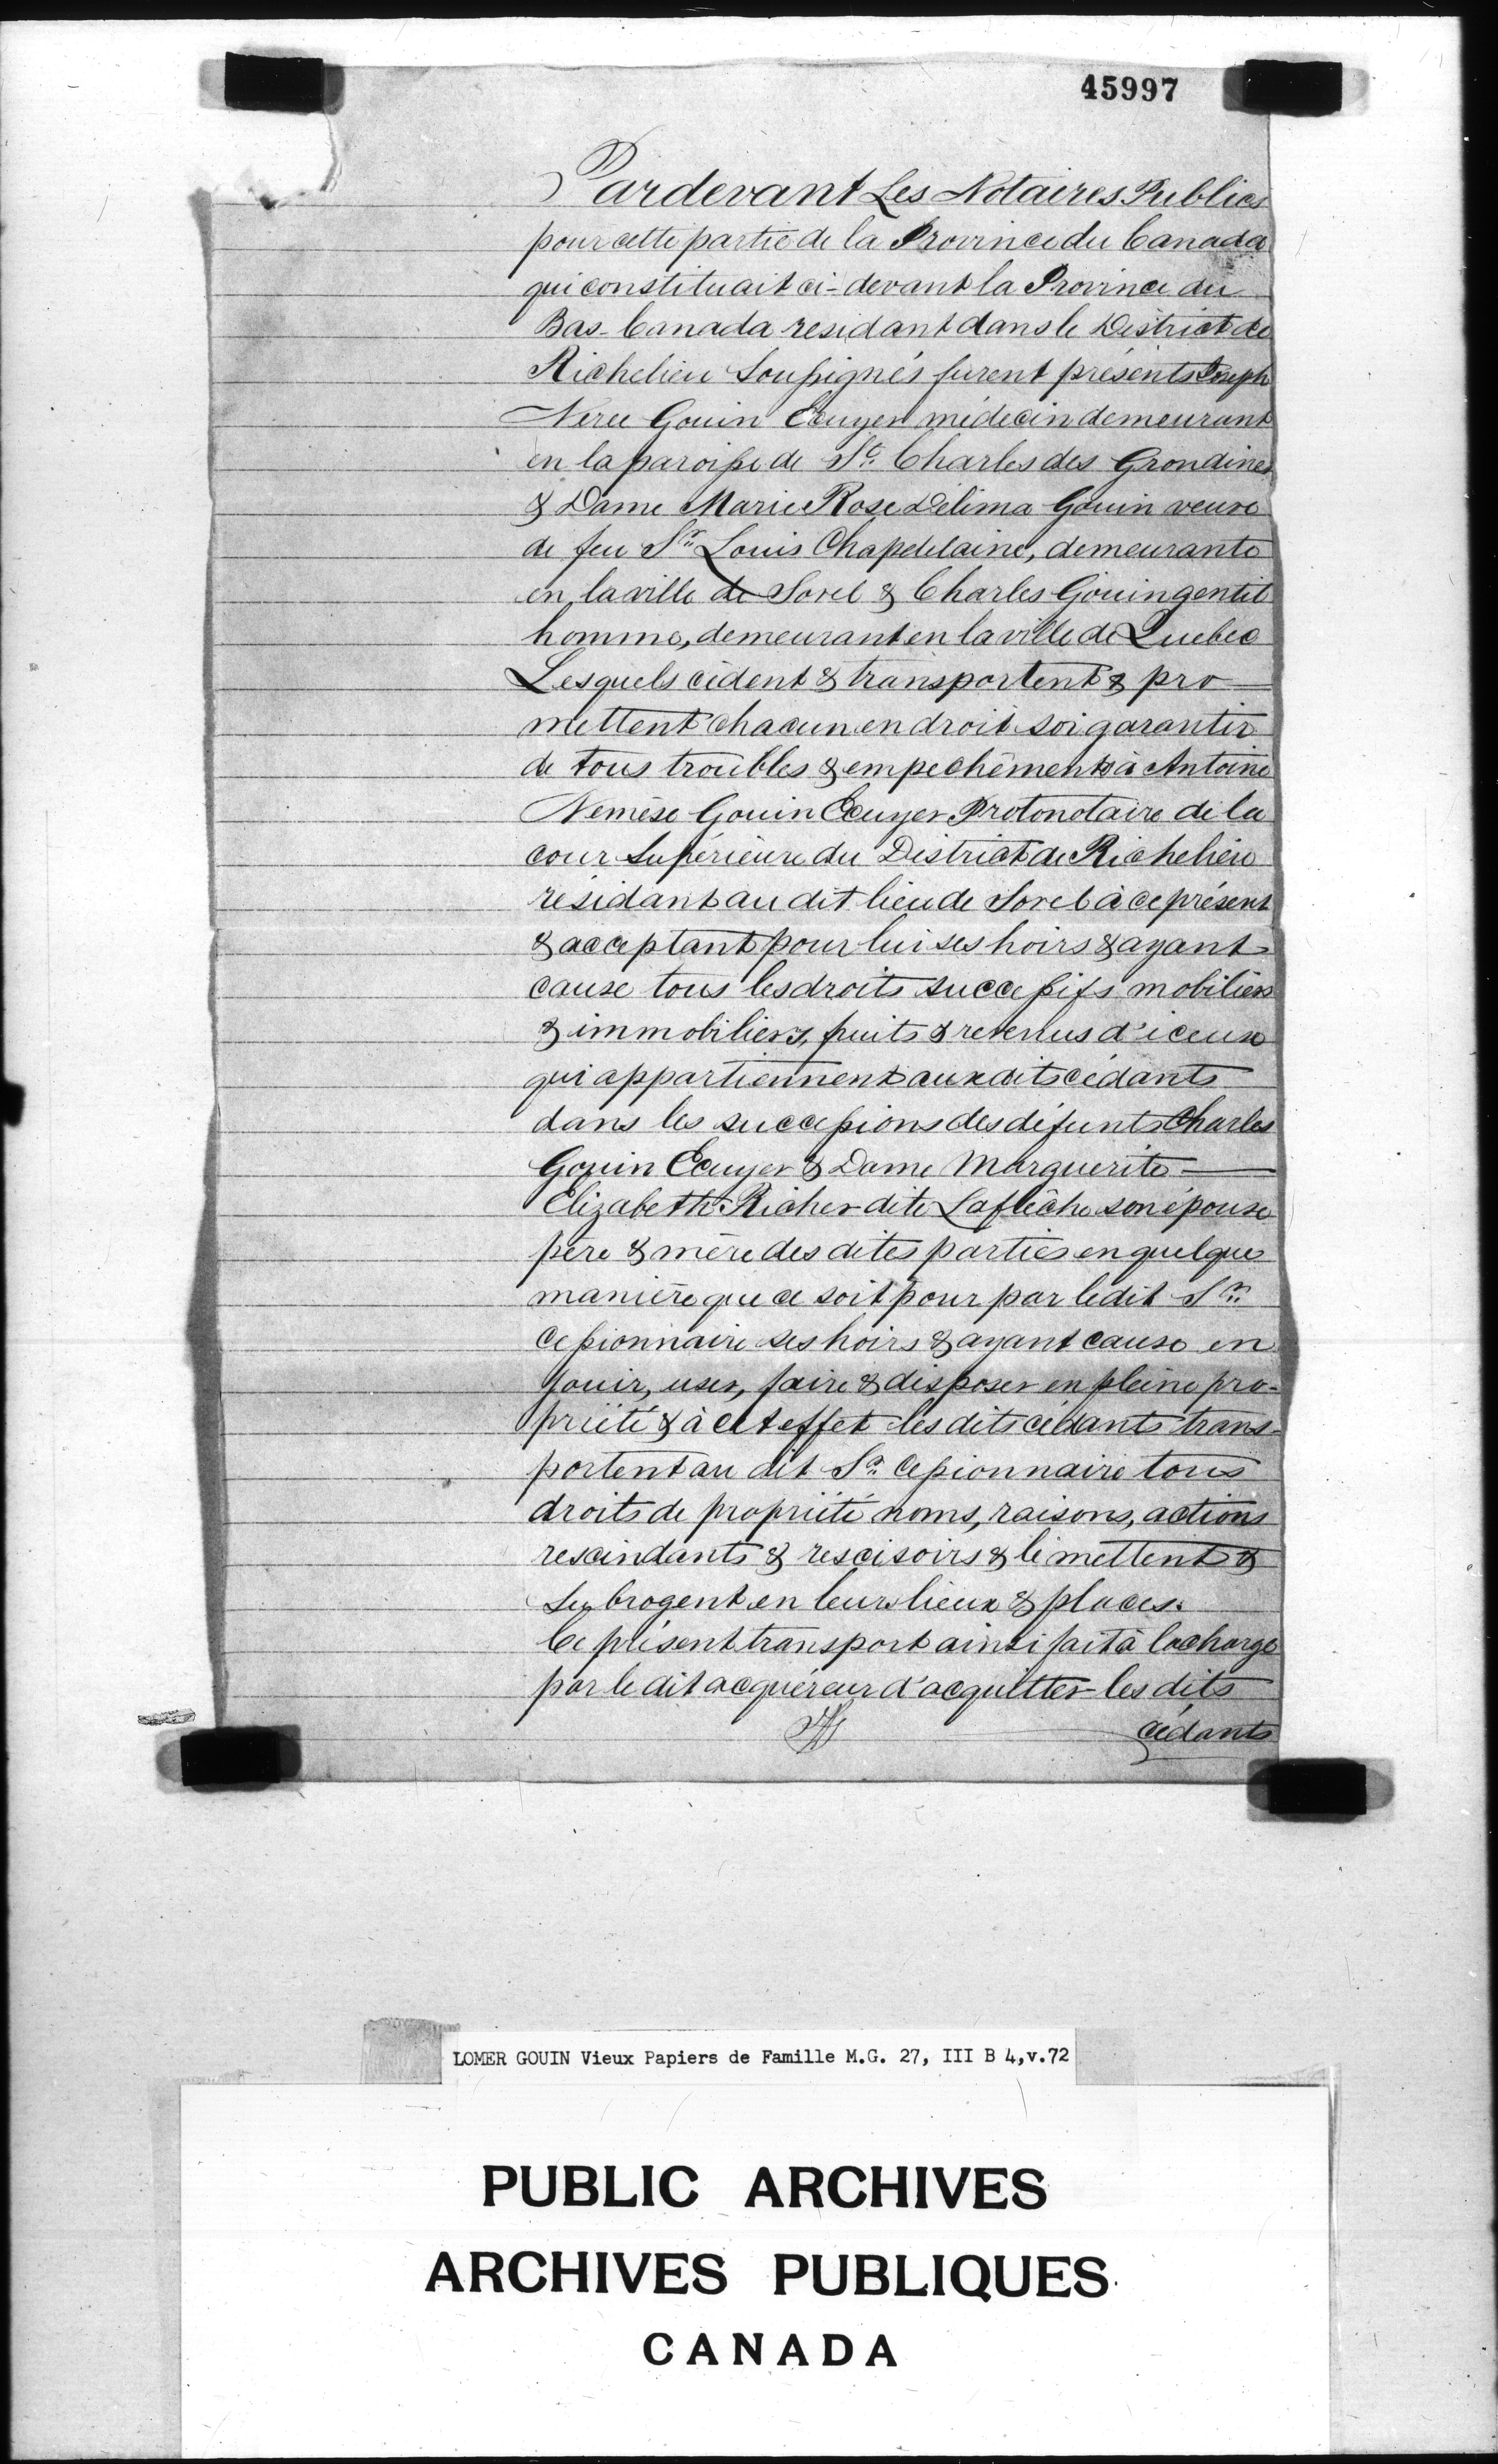 45997
Pardevant Les Notaires Publics
pour cette partie de la Province du Canada
qui constituait ci-devant la Province du
Bas-Canada residant dans le District de
Richelieu Soussignés furent présents Joseph
Neree Gouin Ecuyer médecin demeurant
en la paroisse de St. Charles des Grondines
& Dame Marie Rose Délima Gouin veuve
de feu Sr. Louis Chapdelaine, demeurante
en la ville de Sorel & Charles Gouin gentil
homme, demeurant en la ville de Quebec
Lesquels cèdent & transportent & pro-
mettent chacun en droit soi garantir
de tous troubles & empechêments à Antoine
Nemèse Gouin Ecuyer Protonotaire de la
cour Supérieure du District de Richelieu
résidant au dit lieu de Sorel à ce présent
& acceptant pour lui ses hoirs & ayant
cause tous les droits successifs mobiliers
& immobiliers, fruits & revenus d'iceux
qui appartiennent aux dits cédants
dans les successions des défunts Charles
Gouin Ecuyer & Dame Marguerite
Elizabeth Richer dite Laflèche son épouse
père & mère des dites parties en quelque
manière que ce soit pour par le dit Sr.
Cessionnaire ses hoirs & ayant cause en
jouir, user, faire & disposer en pleine pro-
priété & à cet effet les dits cédants trans-
portent au dit Sr. Cessionnaire tous
droits de propriété noms, raisons, actions
rescindants & rescisoirs & le mettent &
subrogent en leurs lieux & places.
Ce présent transport ainsi fait à la charge
par le dit acquéreur d'acquitter les dits
cédants
LOMER GOUIN Vieux Papiers de Famille M.G. 27, III B 4,v.72
PUBLIC ARCHIVES
ARCHIVES PUBLIQUES
CANADA